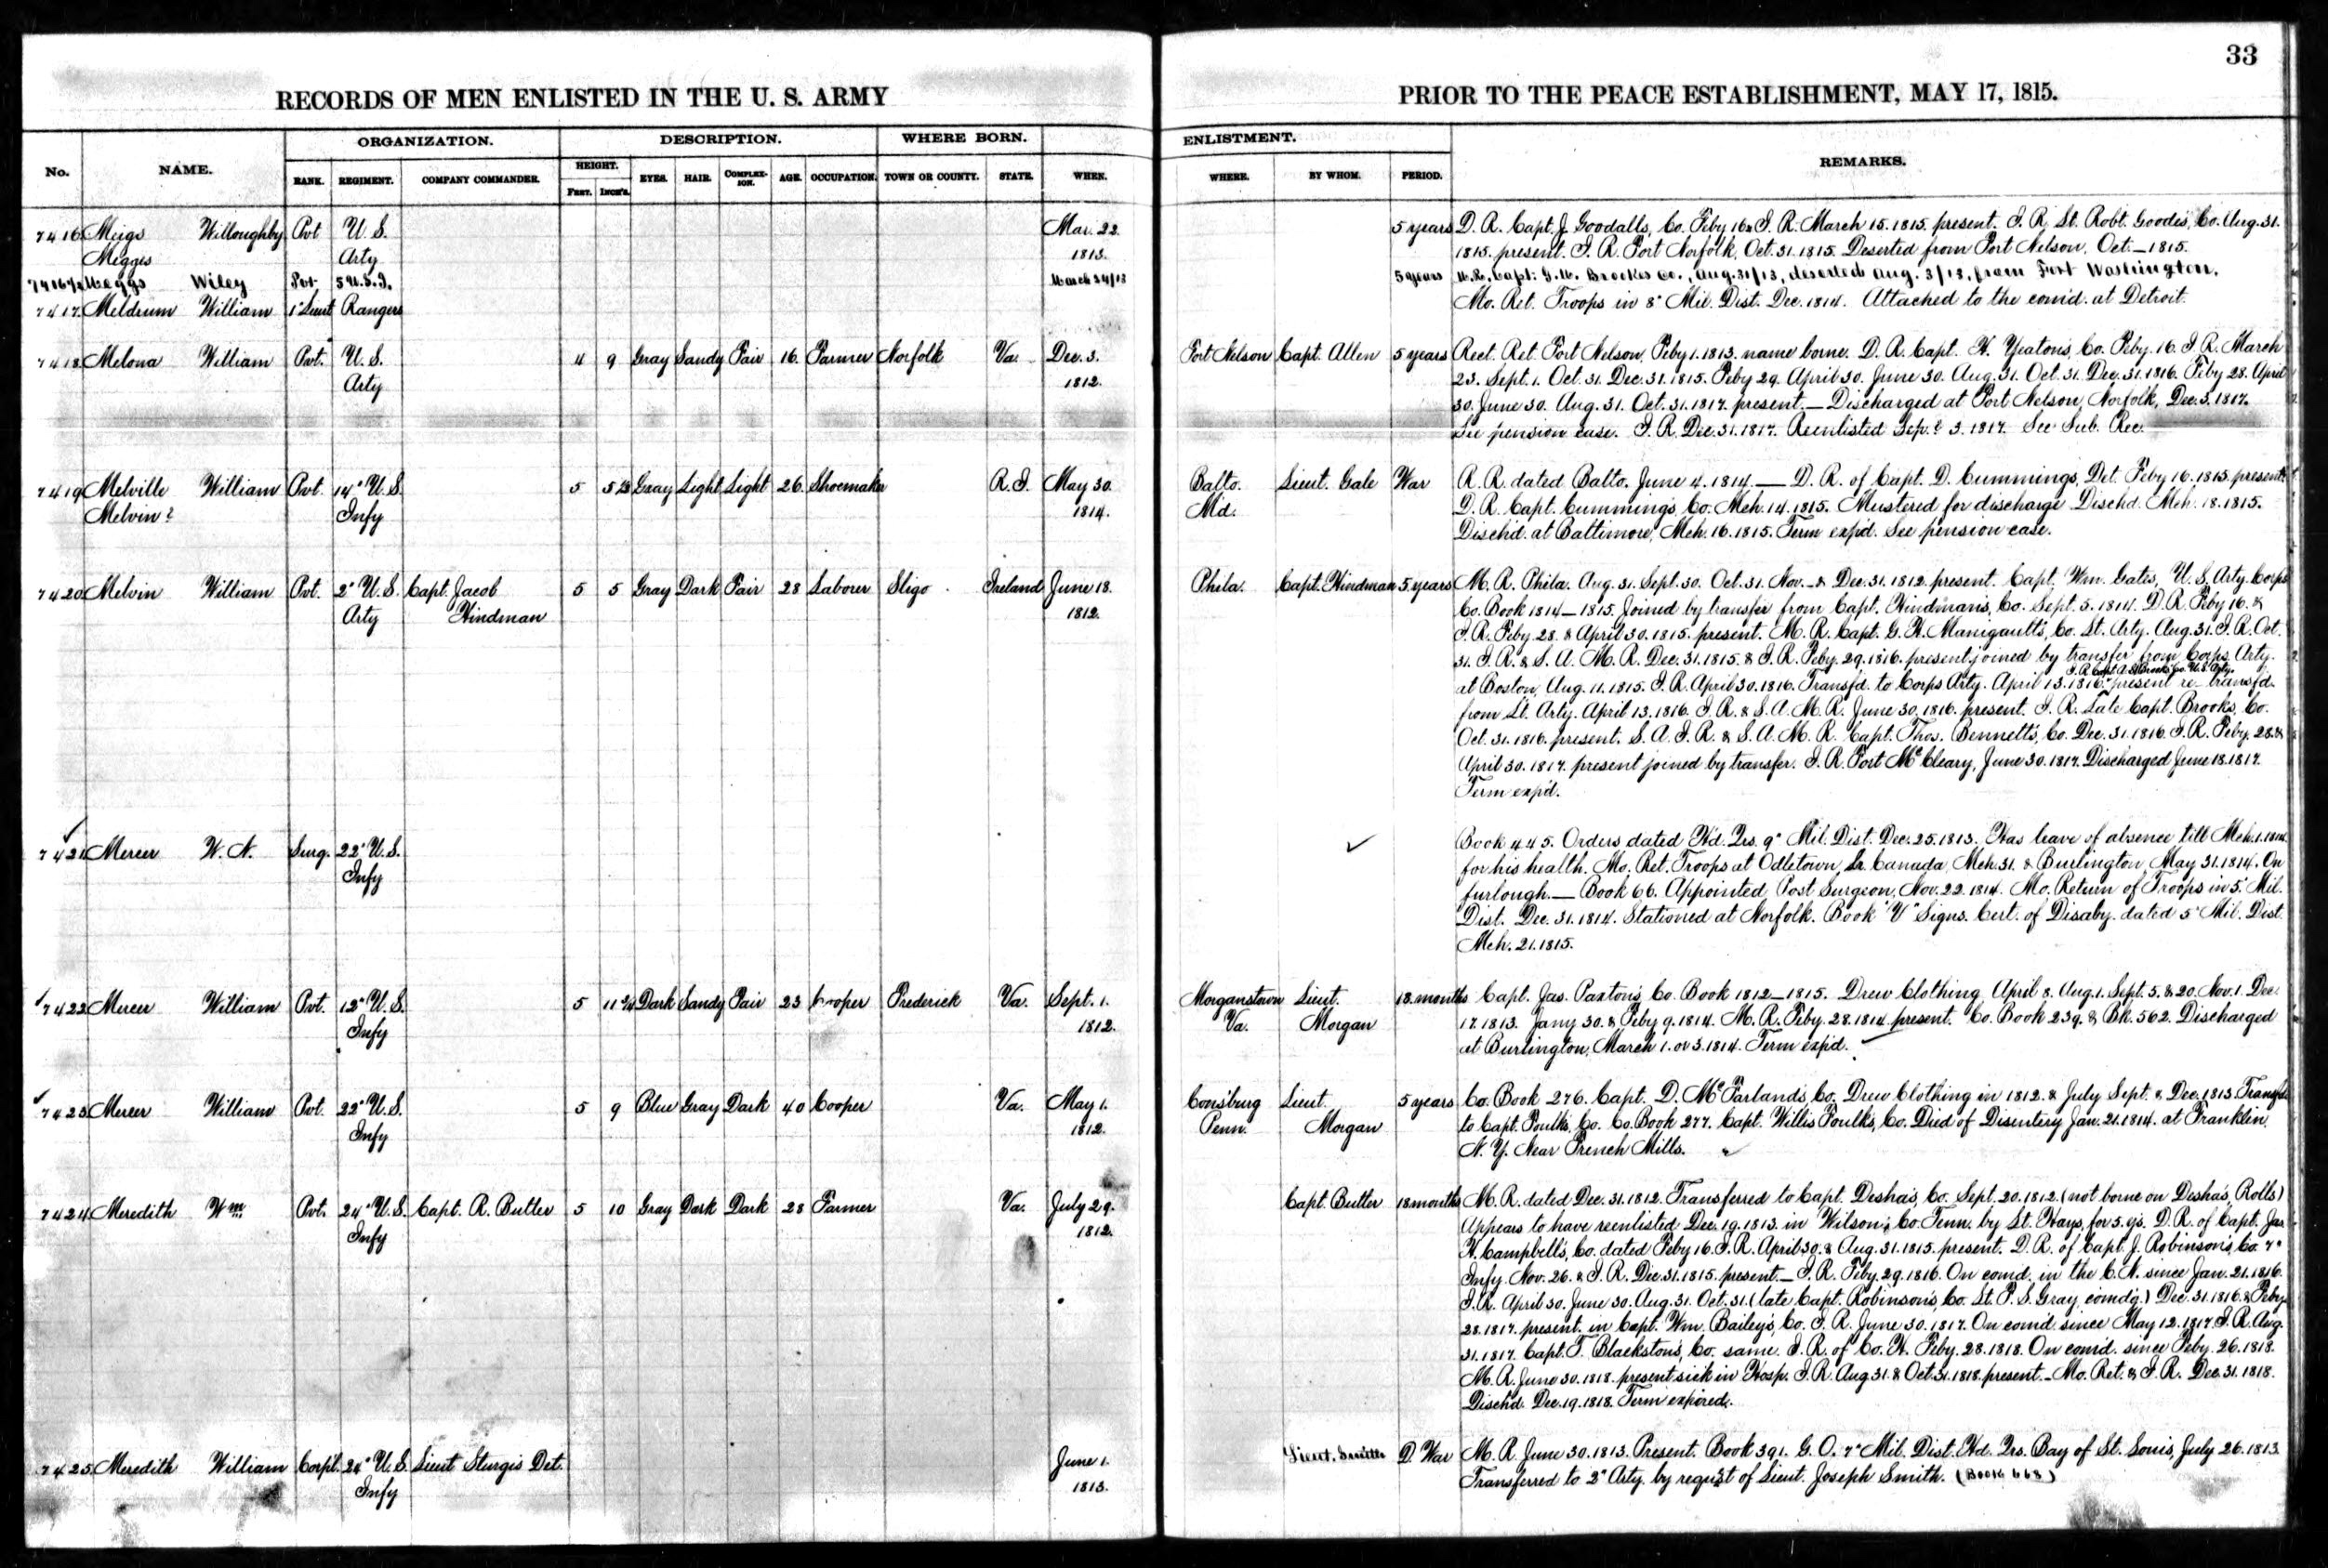 33
RECORDS OF MEN ENLISTED IN THE U. S. ARMY PRIOR TO THE PEACE ESTABLISHMENT, MAY 17, 1815.
ORGANIZATION. DESCRIPTION. WHERE BORN. ENLISTMENT.
No. NAME. RANK. REGIMENT. COMPANY COMMANDER. HEIGHT. FEET. INCH'S. EYES. HAIR. COMPLEXION. AGE. OCCUPATION. TOWN OR COUNTY. STATE. WHEN. WHERE. BY WHOM. PERIOD. REMARKS.
7416 Meigs Willoughby Pvt U. S. Mar. 22. 5 years D. R. Capt. J. Goodalls, Co. Feby 16 & I. R. March 15. 1815. present. I. R. Lt. Robt. Goodes, Co. Aug. 31.
Megges Arty 1813. 1815. present. I. R. Fort Norfolk, Oct. 31. 1815. Deserted from Fort Nelson, Oct. _ 1815.
7416½ Meggs Wiley Pvt 5 U.S.I. March 24/13 5 years M.R. Capt. G. W. Brookes Co., Aug. 31/13, deserted Aug. 3/13, from Fort Washington.
7417 Meldrum William 1" Lieut Rangers Mo. Ret. Troops in 8" Mil. Dist. Dec. 1814. Attached to the com'd. at Detroit.
7418 Melona William Pvt. U. S. 4 9 Gray Sandy Fair 16. Farmer Norfolk Va. Dec. 3. Fort Nelson Capt. Allen 5 years Rect. Ret. Fort Nelson, Feby 1. 1813. name borne. D. R. Capt. H. Yeaton's, Co. Feby. 16. I. R. March
Arty 1812. 23. Sept. 1. Oct. 31. Dec. 31. 1815. Feby 29. April 30. June 30. Aug. 31. Oct. 31. Dec. 31. 1816. Feby 28. April
30. June 30. Aug. 31. Oct. 31. 1817. present. — Discharged at Fort Nelson, Norfolk, Dec. 3. 1817.
See pension case. I. R. Dec. 31. 1817. Reenlisted Sep. 3. 1817. See Sub. Rec.
7419 Melville William Pvt. 14" U. S. 5 5½ Gray Light Light 26. Shoemaker R. I. May 30. Balto. Lieut. Gale War R. R. dated Balto. June 4. 1814. — D. R. of Capt. D. Cummings, Det. Feby 16. 1815. present.
Melvin? Infy 1814. Md. D. R. Capt. Cummings, Co. Mch. 14. 1815. Mustered for discharge Dischd. Mch. 18. 1815.
Dischd. at Baltimore, Mch. 16. 1815. Term exp'd. See pension case.
7420 Melvin William Pvt. 2" U. S. Capt. Jacob 5 5 Gray Dark Fair 28 Laborer Sligo Ireland June 18. Phila. Capt. Hindman 5 years M. R. Phila. Aug. 31. Sept. 30. Oct. 31. Nov. _ & Dec. 31. 1812. present. Capt. Wm. Gates, U. S. Arty. Corps
Arty Hindman 1812. Co. Book 1814 — 1815. Joined by transfer from Capt. Hindman's, Co. Sept. 5. 1814. D. R. Feby 16. &
I. R. Feby. 28. & April 30. 1815. present. M. R. Capt. G. H. Manigault's, Co. Lt. Arty. Aug. 31. I. R. Oct.
31. I. R. & S. A. M. R. Dec. 31. 1815. & I. R. Feby. 29. 1816. present. joined by transfer from Corps Arty.
I. R. Capt. A. S. Brooks' Co. U. S. Arty.
at Boston, Aug. 11. 1815. I. R. April 30. 1816. Transfd. to Corps Arty. April 13. 1816. present re-transfd.
from Lt. Arty. April 13. 1816. I. R. & S. A. M. R. June 30. 1816. present. I. R. Late Capt. Brooks, Co.
Oct. 31. 1816. present. S. A. I. R. & S. A. M. R. Capt. Thos. Bennett's, Co. Dec. 31. 1816. I. R. Feby. 28. &
April 30. 1817. present joined by transfer. I. R. Fort McCleary, June 30. 1817. Discharged June 18. 1817.
Term exp'd.
7421 Mercer W. N. Surg. 22" U. S. Book 445. Orders dated Hd. Qrs. 9" Mil. Dist. Dec. 25. 1813. Has leave of absence till Mch. 1. 1814
Infy for his health. Mo. Ret. Troops at Odletown, Lr. Canada, Mch. 31. & Burlington, May 31. 1814. On
furlough. — Book 66. Appointed Post Surgeon, Nov. 22. 1814. Mo. Return of Troops in 5" Mil.
Dist. Dec. 31. 1814. Stationed at Norfolk. Book "V" Signs. Cert. of Disaby. dated 5" Mil. Dist.
Mch. 21. 1815.
7422 Mercer William Pvt. 12" U. S. 5 11¾ Dark Sandy Fair 23 Cooper Frederick Va. Sept. 1. Morganstown Lieut. 18 months Capt. Jas. Paxton's, Co. Book 1812 — 1815. Drew Clothing, April 8. Aug. 1. Sept. 5. & 20. Nov. 1. Dec.
Infy 1812. Va. Morgan 17. 1813. Jany 30. & Feby 9. 1814. M. R. Feby. 28. 1814. present. Co. Book 239. & Bk. 562. Discharged
at Burlington, March 1. or 3. 1814. Term exp'd.
7423 Mercer William Pvt. 22" U. S. 5 9 Blue Gray Dark 40 Cooper Va. May 1. Conisburg Lieut. 5 years Co. Book 276. Capt. D. McFarlands, Co. Drew Clothing in 1812. & July Sept. & Dec. 1813. Transfd
Infy 1812. Penn. Morgan to Capt. Foulk's, Co. Co. Book 277. Capt. Willis Foulks, Co. Died of Disentery Jan. 21. 1814. at Franklin,
N. Y. Near French Mills.
7424 Meredith Wm Pvt. 24" U. S. Capt. R. Butler 5 10 Gray Dark Dark 28 Farmer Va. July 29. Capt. Butler 18 months M. R. dated Dec. 31. 1812. Transferred to Capt. Desha's, Co. Sept. 20. 1812. (not borne on Desha's, Rolls)
Infy 1812. Appears to have reenlisted Dec. 19. 1813. in Wilson, Co. Tenn. by Lt. Hays, for 5. ys. D. R. of Capt. Jas
H. Campbell's, Co. dated Feby 16. I. R. April 30. & Aug. 31. 1815. present. D. R. of Capt. J. Robinson's, Co. 7"
Infy. Nov. 26. & I. R. Dec. 31. 1815. present. — I. R. Feby. 29. 1816. On comd. in the C. N. since Jan. 21. 1816.
I. R. April 30. June 30. Aug. 31. Oct. 31. (late Capt. Robinson's Co. Lt. F. S. Gray, comd'g.) Dec. 31. 1816. & Feby
28. 1817. present. in Capt. Wm. Bailey's, Co. I. R. June 30. 1817. On comd. since May 12. 1817. I. R. Aug.
31. 1817. Capt. T. Blackstons, Co. same. I. R. of Co. H. Feby. 28. 1818. On comd. since Feby. 26. 1818.
M. R. June 30. 1818. present sick in Hosp. I. R. Aug 31. & Oct. 31. 1818. present. — Mo. Ret. & I. R. Dec. 31. 1818.
Disch'd. Dec. 19. 1818. Term expired.
7425 Meredith William Corpl. 24" U. S. Lieut Sturgis Det. June 1. Lieut. Smith D. War M. R. June 30. 1813. Present. Book 391. G. O. 7" Mil. Dist. Hd. Qrs. Bay of St. Louis, July 26. 1813.
Infy 1813. Transferred to 2" Arty. by request of Lieut. Joseph Smith. (Book 668)